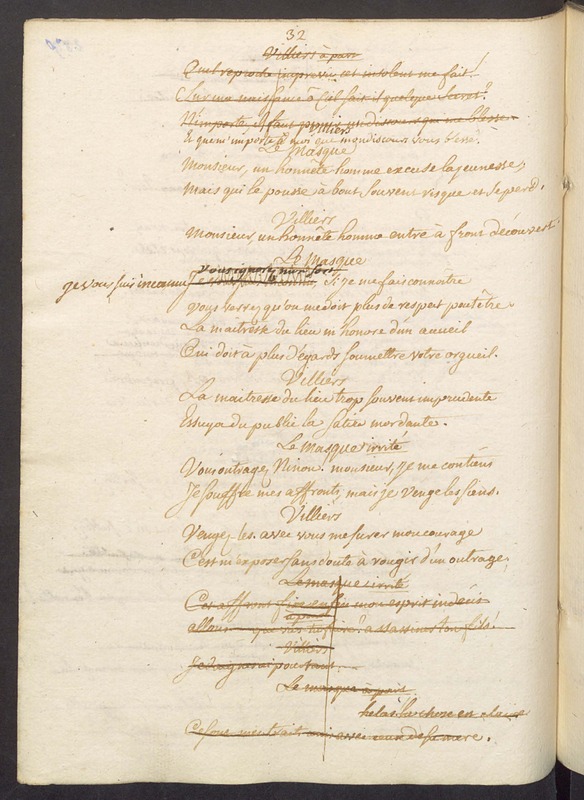 32
Villiers à part
Quel reproche imprévu cet insolent me fait!
Sur ma naissance ô Ciel sait-il quelque secret?
N'importe il faut punir un discours qui me blesse.
Villiers
Et que m'importe à moi que mon discours vous blesse.
Le Masque
Monsieur, un honnête homme excuse la jeunesse,
Mais qui le pousse à bout souvent risque et se perd.
Villiers
Monsieur, un honnête homme entre à front découvert.
Le Masque
vous ignorez mon sort
je vous suis inconnu Si je me fais connoître
Vous verrez qu'on me doit plus de respect peutêtre.
La maitresse du lieu m'honore d'un accueil
Qui doit à plus d'égards soumettre votre orgueil.
Villiers
La maitresse du lieu trop souvent imprudente
Essuya du public la satire mordante.
Le Masque irrité
Vous outragez Ninon. monsieur, je me contiens
Je souffre mes affronts, mais je venge les siens.
Villiers
Vengez-les. avec vous mesurer mon courage
C'est m'exposer sans doute à rougir d'un outrage,
Le masque irrité
Cet affront fixe enfin mon esprit indécis
à part
allons que vas-tu faire? assassiner ton fils!
Villiers
Je daignerai pourtant.
Le masque à part
helas la chose est claire